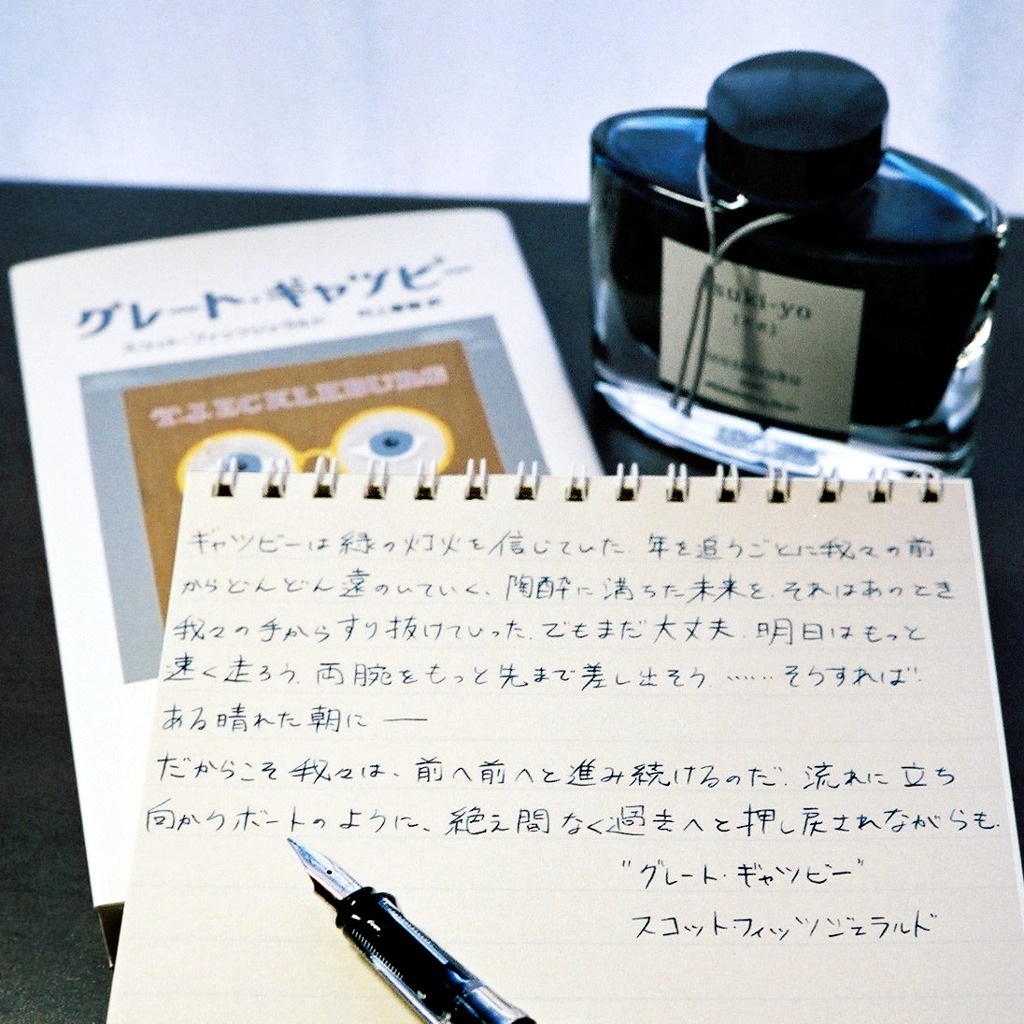 グレート・ギャツビー
スコット・フィッツジェラルド 村上春樹 訳
T.J ECKLEBURG
suki-yo
ギャツビーは緑の灯火を信じていた。年を追うごとに我々の前
からどんどん遠のいていく、陶酔に満ちた未来を。それはあのとき
我々の手からすり抜けていった。でもまだ大丈夫。明日はもっと
速く走ろう。両腕をもっと先まで差し出そう。……そうすれば
ある晴れた朝に ――
だからこそ我々は、前へ前へと進み続けるのだ。流れに立ち
向かうボートのように、絶え間なく過去へと押し戻されながらも。
"グレート・ギャツビー"
スコット・フィッツジェラルド